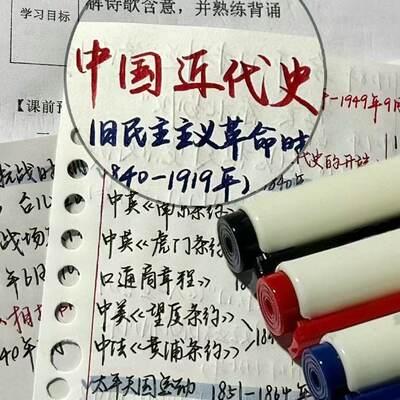 解诗歌含意，并熟练背诵
学习目标
【课前预
中国近代史
-1949年9月
旧民主主义革命时
代史的开端
840-1919年）
1840年
抗战时
中英《南京条约》
战场
中英《虎门条约
年6月
口通商章程》
中美《望厦条约》
相
中法《黄浦条约》
40年
太平天国运动 1851-1864年